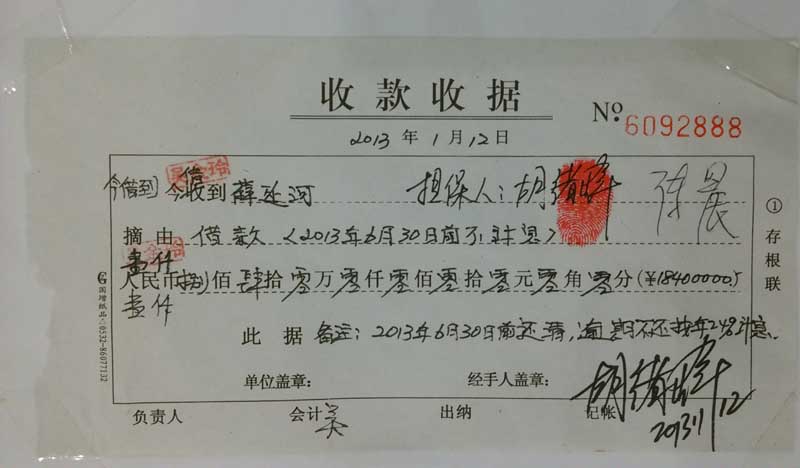 收款收据
№ 6092888
2013 年 1 月 12 日
今借到 今收到 薛延河 担保人:胡 徐晨
摘 由 借款(2013年6月30日前不计息)
壹仟
人民币 捌佰肆拾零万零仟零佰零拾零元零角零分(¥18400000)
壹仟
此 据 备注:2013年6月30日前还清,逾期不还按年24%计息.
单位盖章: 经手人盖章: 胡
2013 1/12
负责人 会计 吴 出纳 记帐
① 存根联
国增纸品:0532-86077132